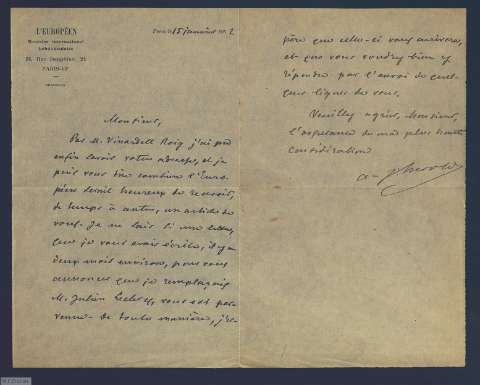 L'EUROPÉEN
Courrier International
Hebdomadaire
24, Rue Dauphine, 24
PARIS-VIe
Paris, le 15 janvier 190 2
Monsieur,
Par M. Vinardell Roig j'ai pu
enfin savoir votre adresse, et je
puis vous dire combien l'Euro-
péen serait heureux de recevoir,
de temps à autre, un article de
vous. Je ne sais si une lettre,
que je vous avais écrite, il y a
deux mois environ, pour vous
annoncer que je remplaçais
M. Julien Leclercq, vous est par-
venue. De toute manière, j'es-
père que celle-ci vous arrivera,
et que vous voudrez bien y
répondre par l'envoi de quel-
ques lignes de vous.
Veuillez agréer, Monsieur,
l'assurance de ma plus haute
considération